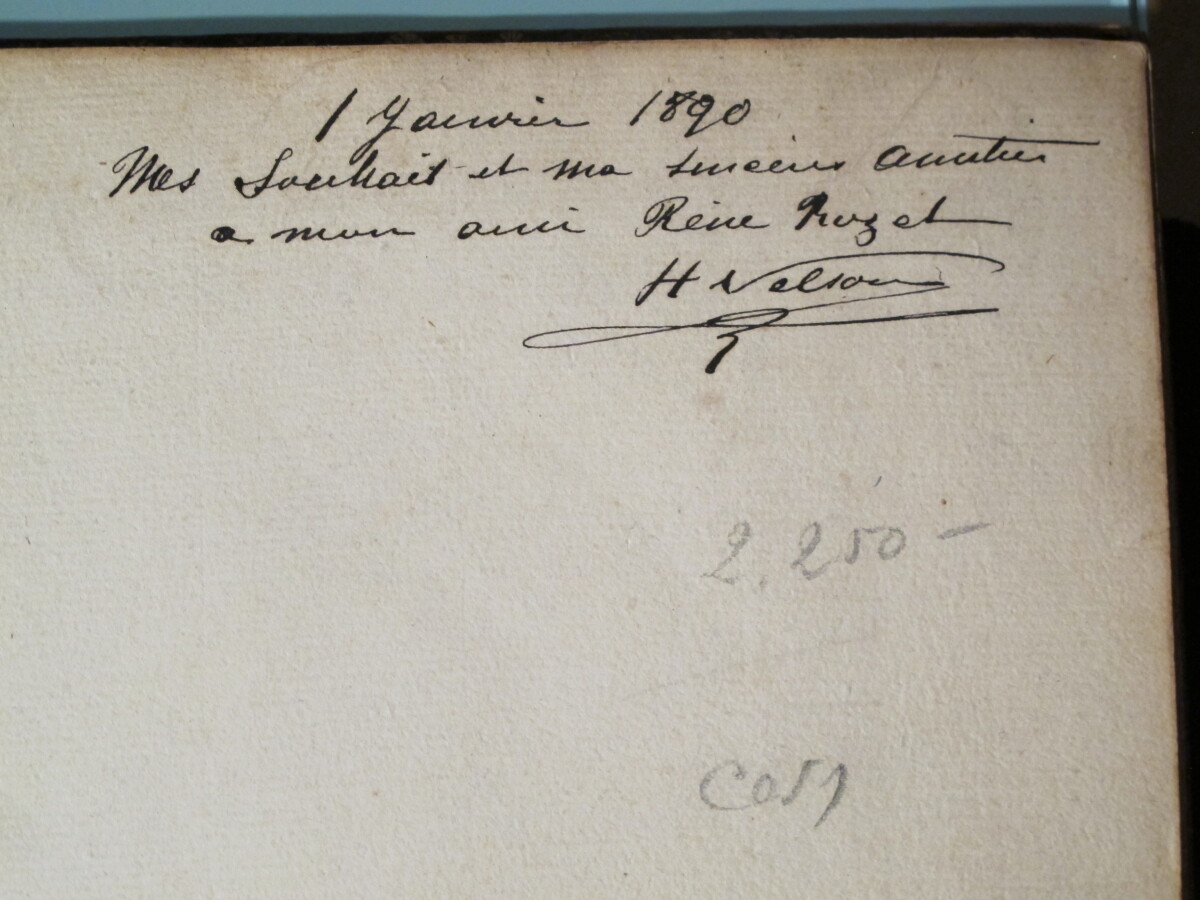 1 Janvier 1890
Mes Souhait et ma sincère amitiée
a mon ami Réne Rozet
H Nelson
2.250-